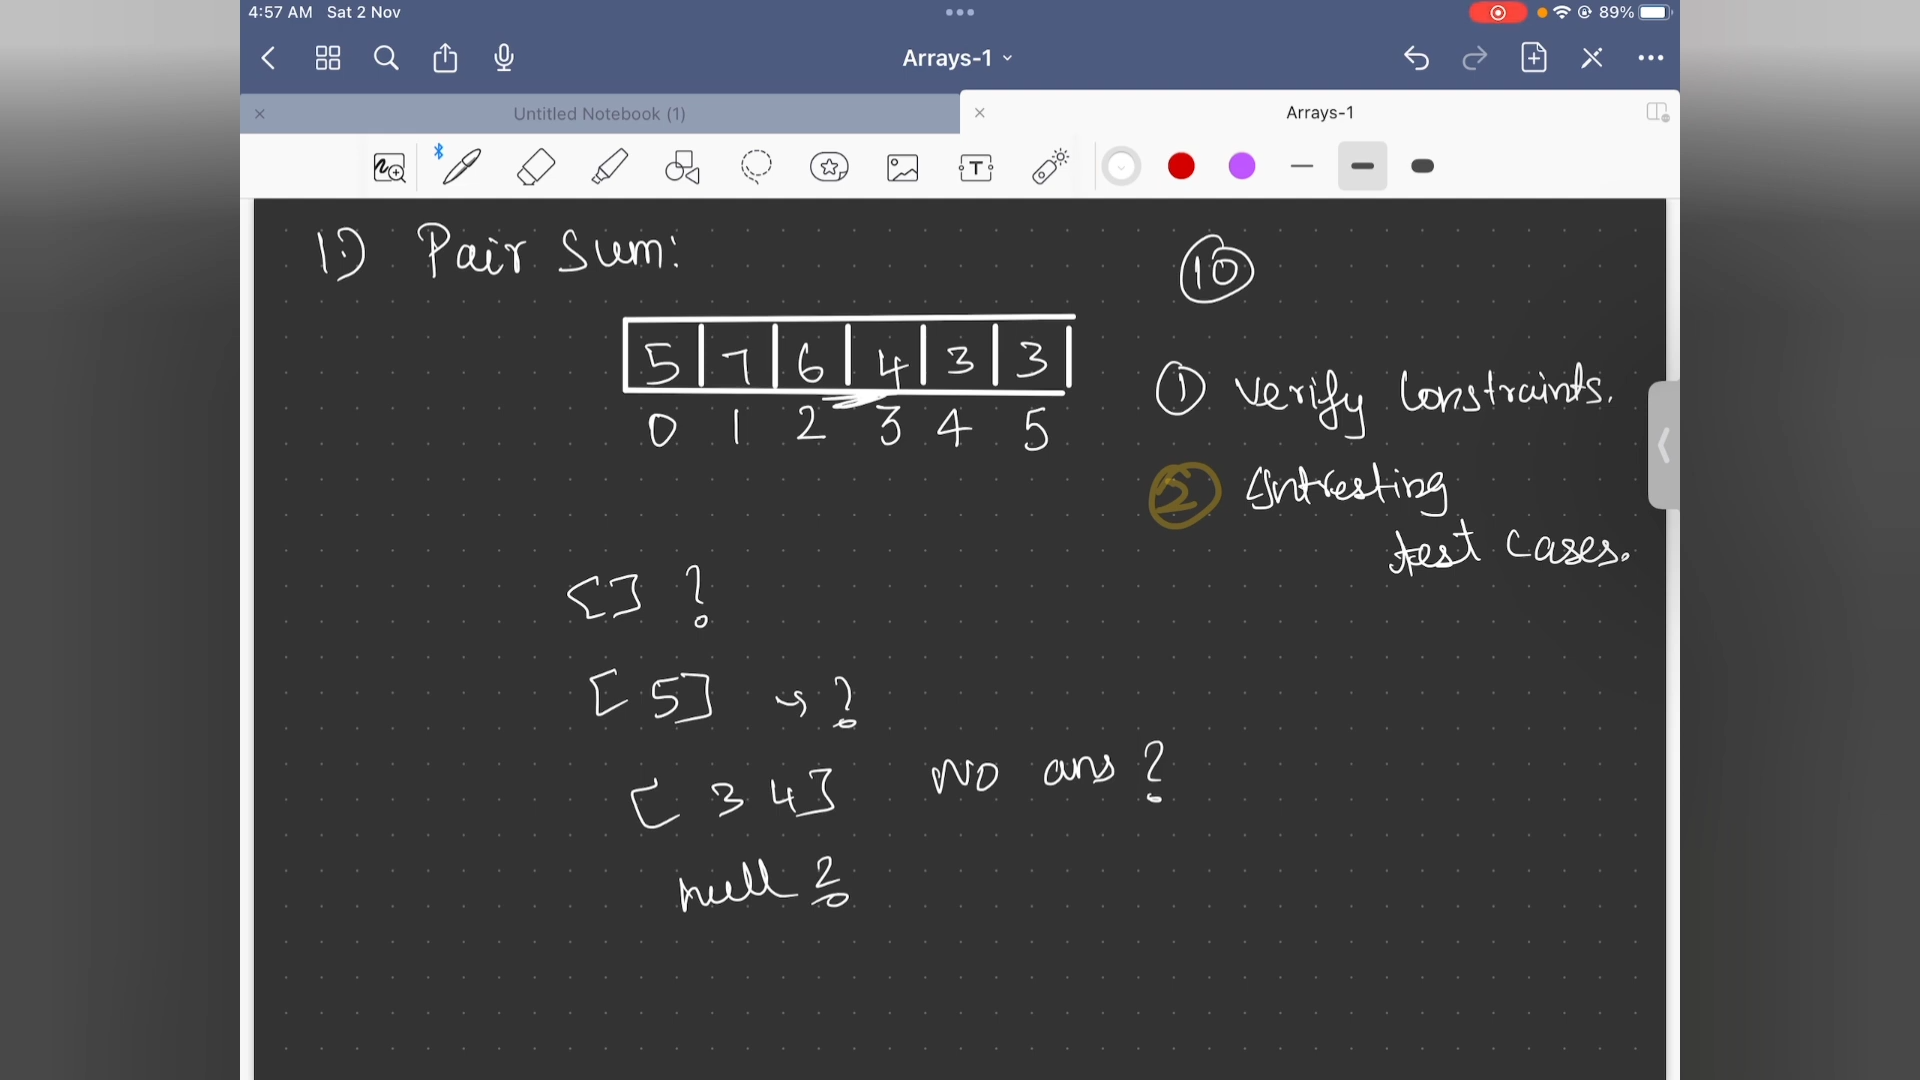 4:57 AM Sat 2 Nov
89%
Arrays-1
Untitled Notebook (1)
Arrays-1
T
1.) Pair Sum:
10
5 7 6 4 3 3
0 1 2 3 4 5
1 Verify Constraints.
2 Intresting
test Cases.
[] ?
[ 5] ↪ ?
[ 3 4] No ans ?
null ?